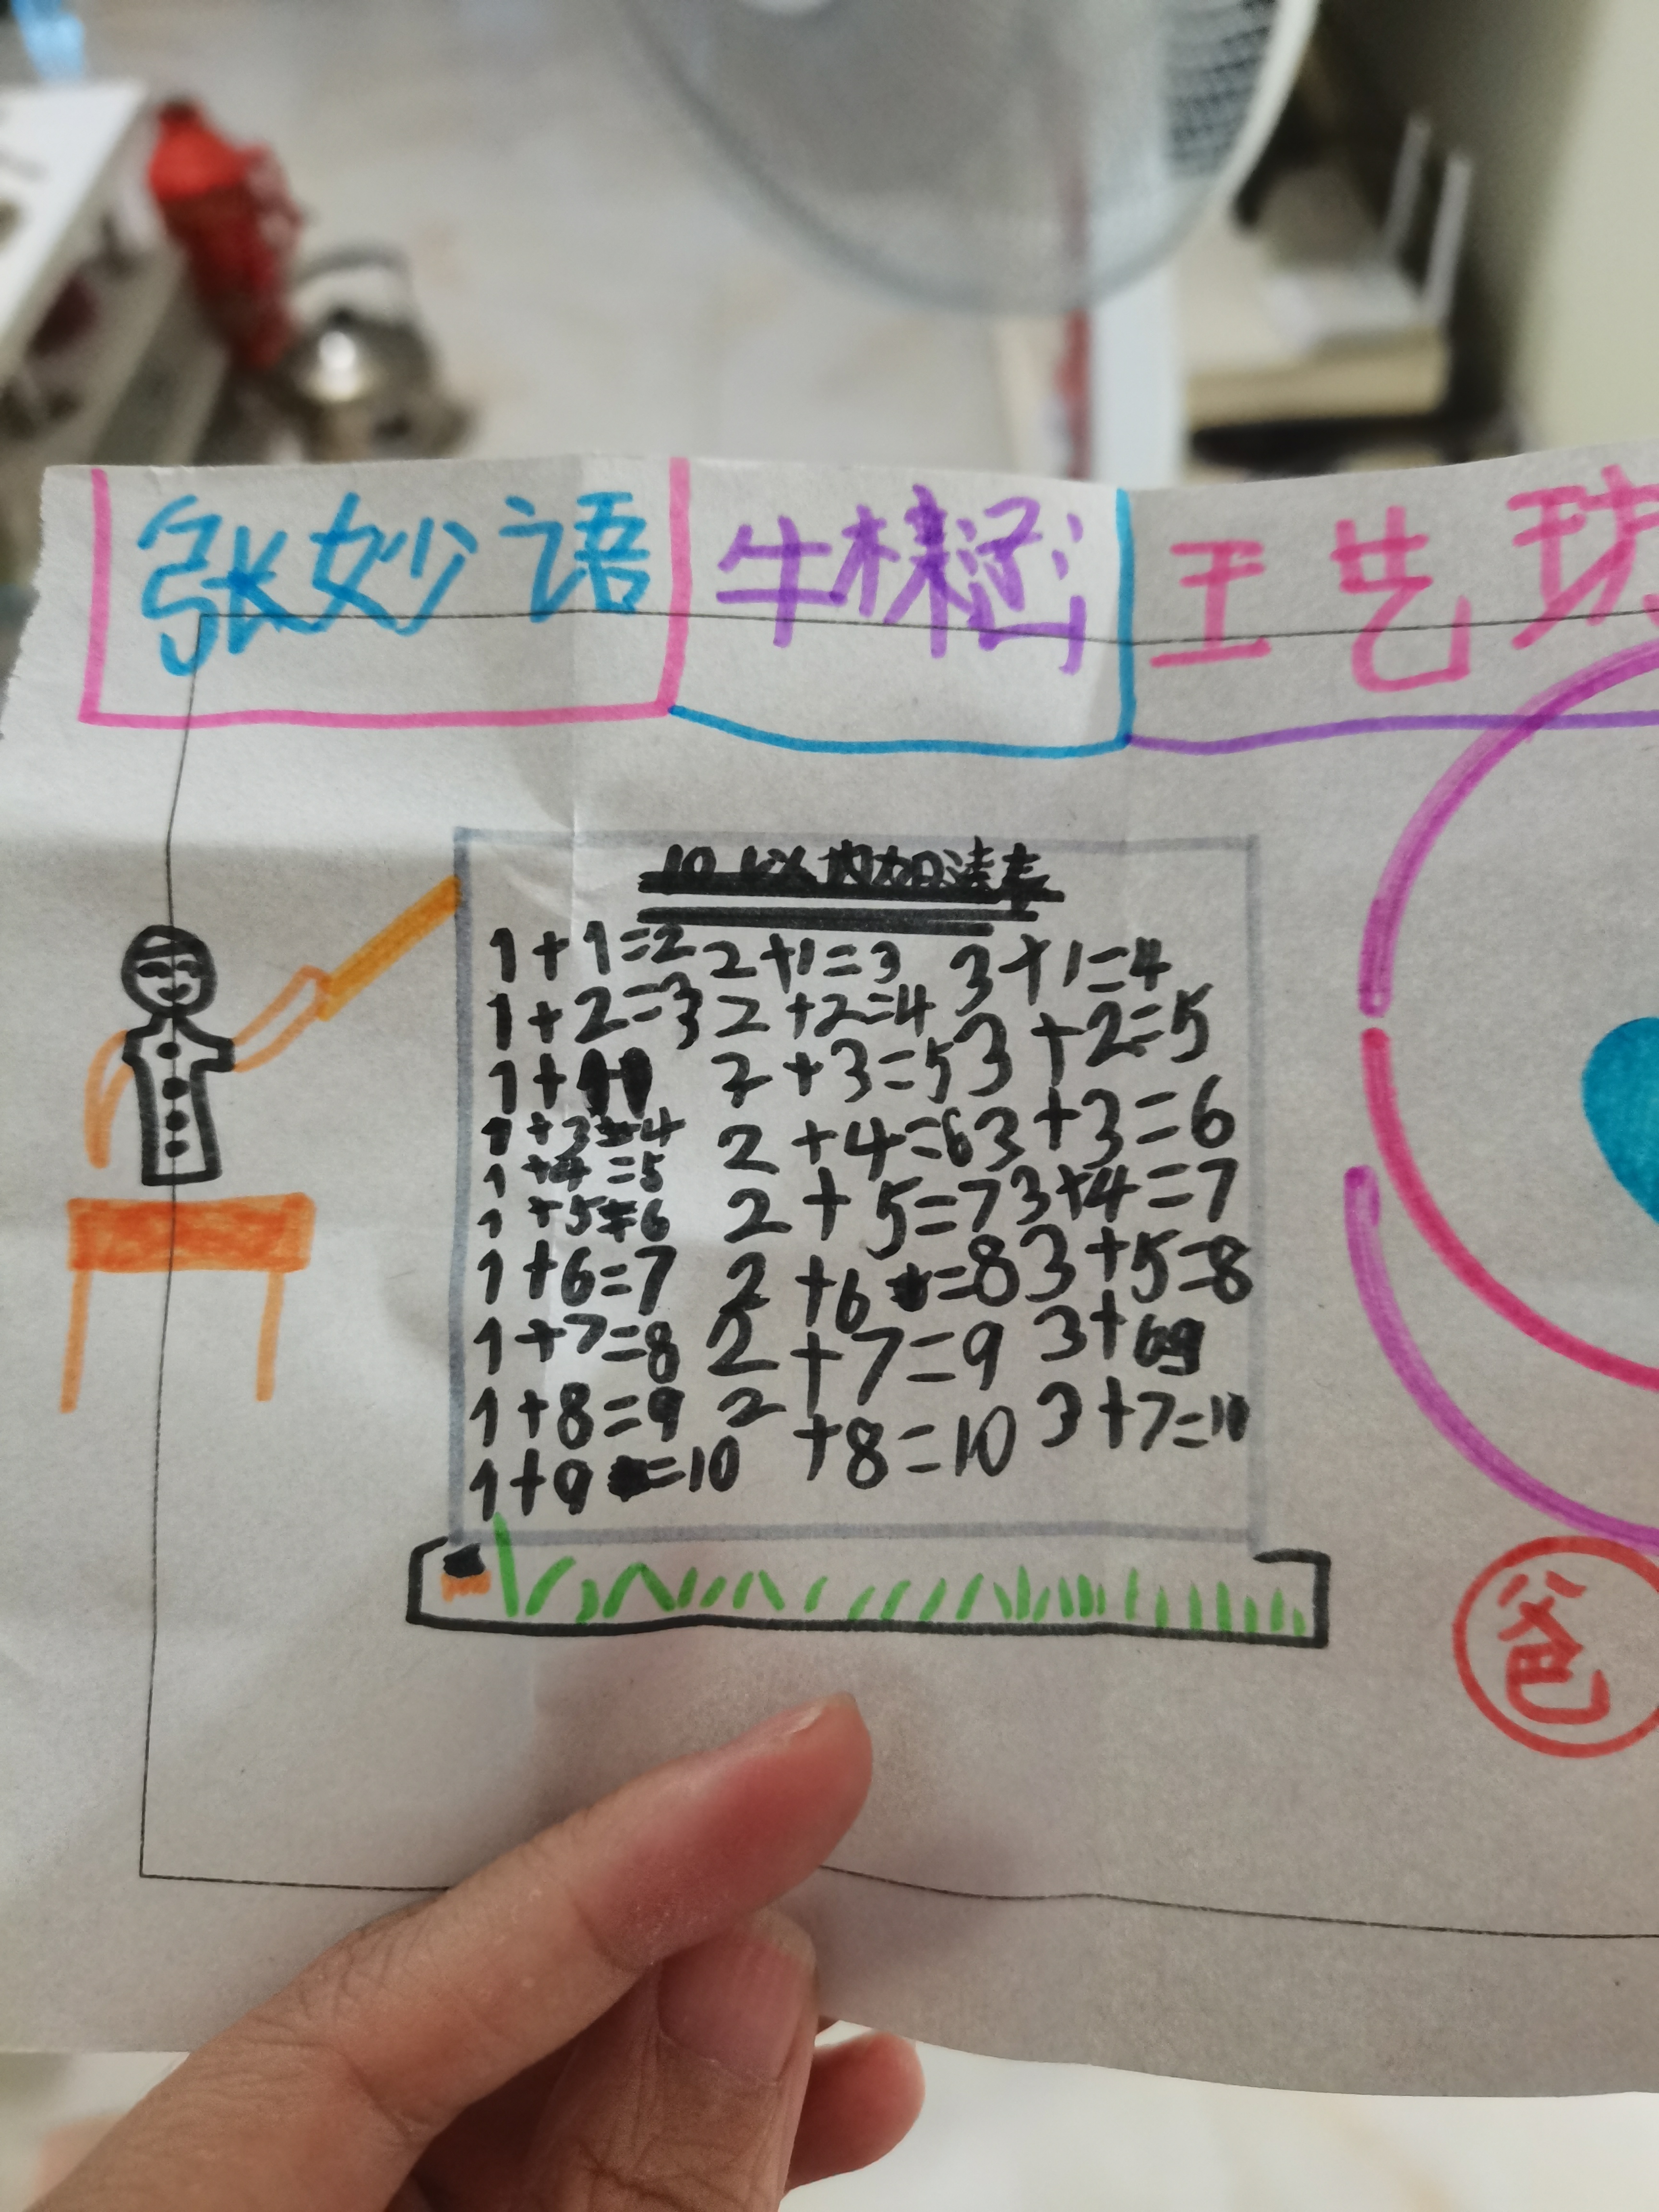 张妙语 牛棶函 王艺球
10以内加法表
1+1=2 2+1=3 3+1=4
1+2=3 2+2=4 3+2=5
1+ 2+3=5 3+3=6
1+3=4 2+4=6 3+4=7
1+4=5 2+5=7 3+5=8
1+5=6 2+6=8 3+69
1+6=7 2+7=9 3+7=10
1+7=8 2+8=10
1+8=9
1+9=10
爸